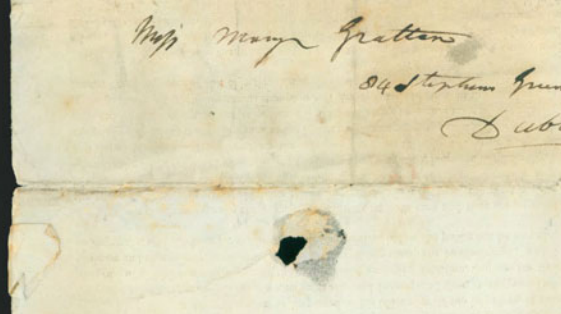 Miss Mary Grattan
84 Stephens Green
Dub